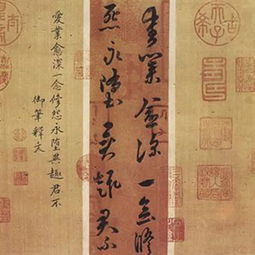 愛業愈深一念修
怨永墮異趣君不
愛業愈深一念修怨永墮異趣君不
御筆釋文